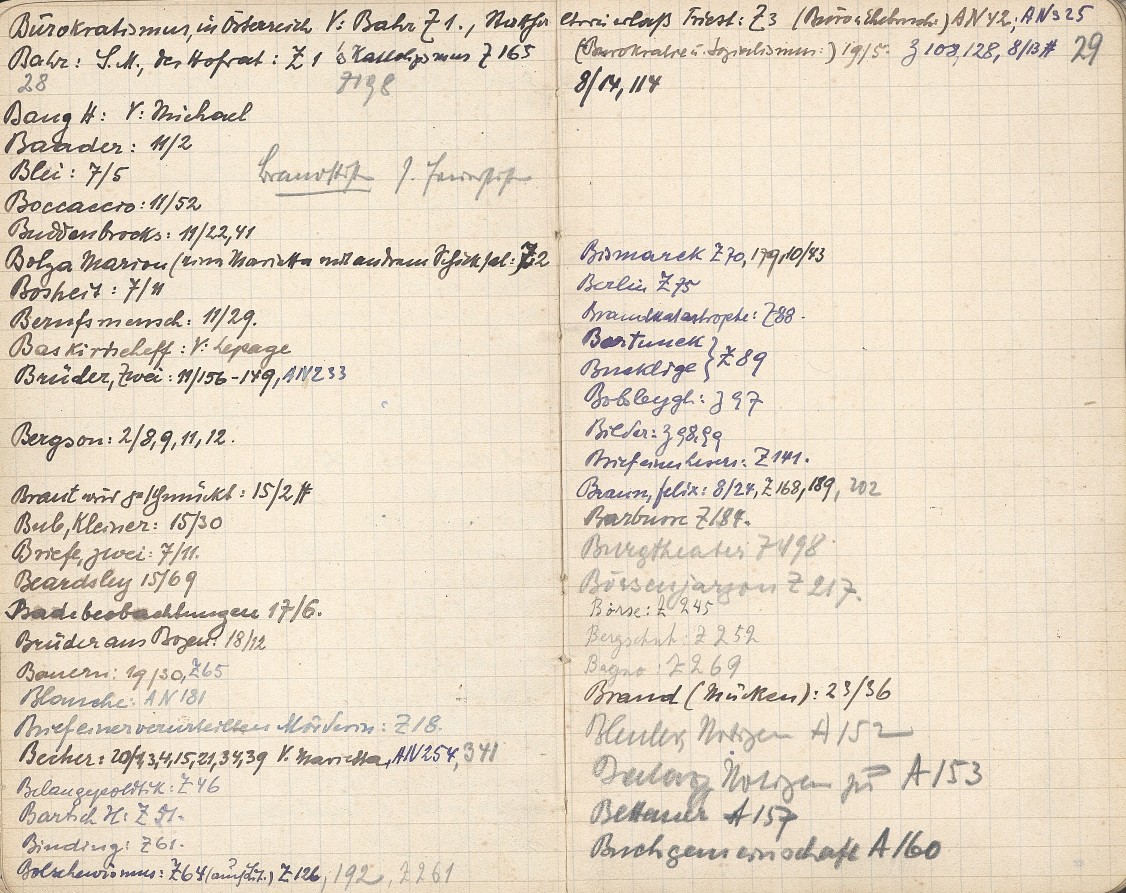 Bürokratismus, in Österreich V: Bahr Z 1., Triest: Z3 AN42, AN325
Bahr: S.M., der Hofrat: Z 1 Z 165 19/5. Z 108, 128, 8/13 29
28 Z198 8/14, 114
Bang H: V: Michael
Baader: 11/2
Blei: 7/5
Boccaccio: 11/52
Buddenbrocks: 11/22, 41
Bolza Marion (eine Marietta mit andrem Schicksal: Z2
Bosheit: 7/11
Berufsmensch: 11/29.
Baskirtscheff: V: Lepage
Brüder, zwei: 11/156-149, AN233
Bergson: 2/8, 9, 11, 12.
Braut wird geschmückt: 15/2
Bub, Kleiner: 15/30
Briefe, zwei: 7/11.
Beardsley 15/69
Badebeobachtungen 17/6.
Brüder aus Bozen: 18/12
Bauern: 19/30, Z65
Blansche: AN 181
Brief einer verurteilten Mörderin: Z18.
Becher: V. Marietta, AN254, 341
Belangepolitik: Z46
Bartsch H: Z 51.
Binding: Z61.
Bolschewismus: Z64 Z126, 192, Z261
Bismarck Z70, 179, 10/43
Berlin Z75
Brandkatastrophe: Z88.
Bartunek
Bucklige } Z89
Bobsleigh: Z97
Bilder: Z98, 99
Brief eines Lesers: Z141.
Braun, Felix: 8/24, Z168, 189, 202
Barbusse Z184.
Burgtheater Z198
Börsenjargon Z217.
Börse: Z 245
Z252
Bagno: Z269
Brand (Mücken): 23/36
Bleuler, Notizen A152
Notizen zu A153
Bettauer A157
Buchgemeinschaft A160